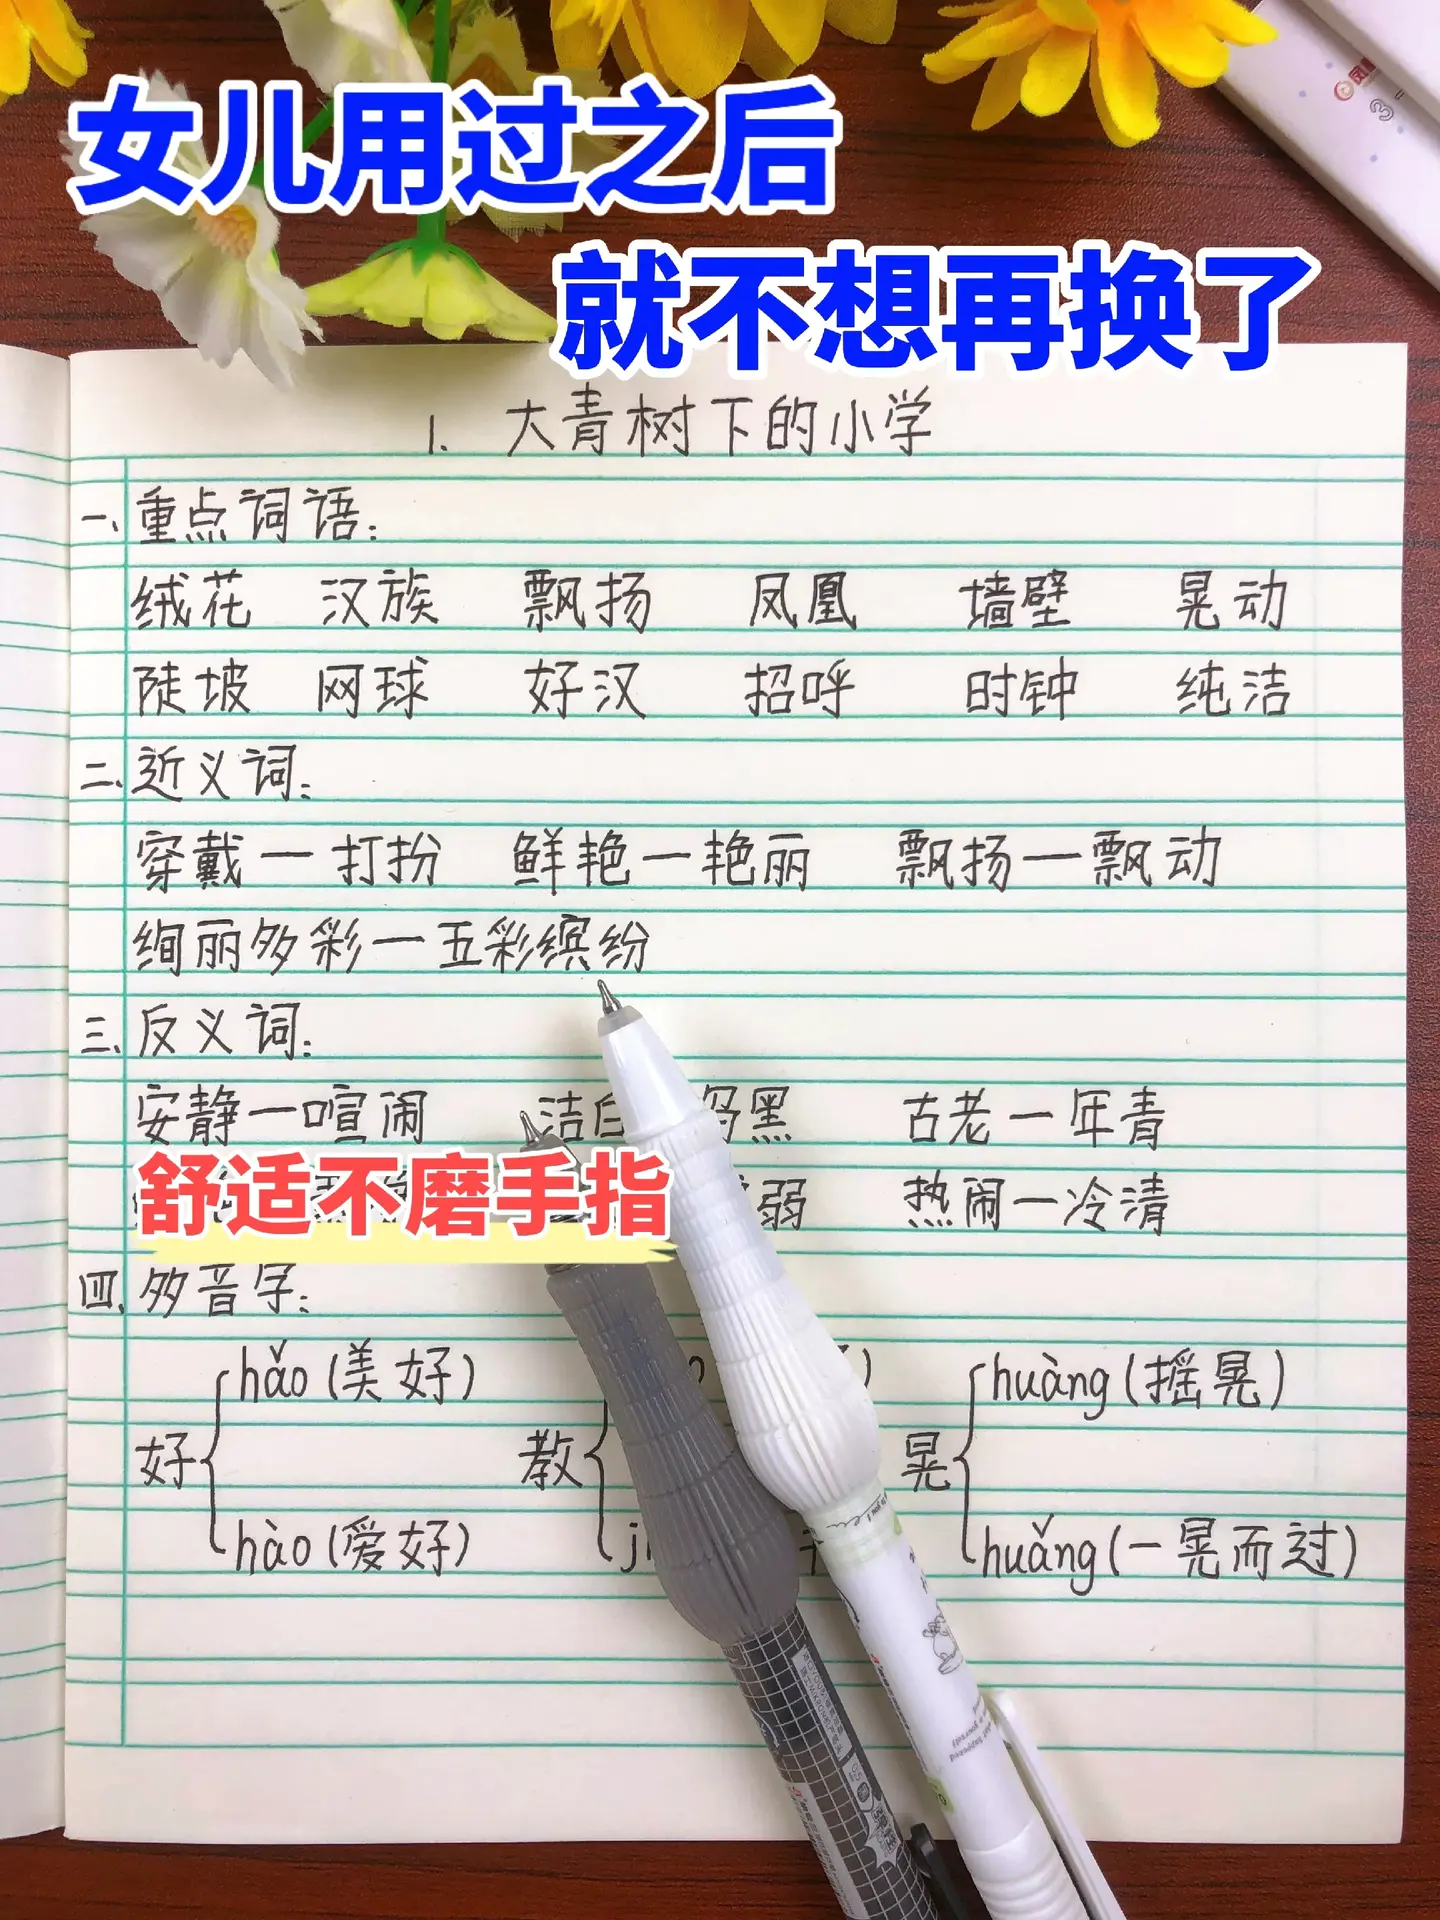 女儿用过之后
就不想再换了
1. 大青树下的小学
一、重点词语:
绒花 汉族 飘扬 凤凰 墙壁 晃动
陡坡 网球 好汉 招呼 时钟 纯洁
二、近义词:
穿戴—打扮 鲜艳—艳丽 飘扬—飘动
绚丽多彩—五彩缤纷
三、反义词:
安静—喧闹 洁白 黑 古老—年青
舒适不磨手指
弱 热闹—冷清
四、多音字:
hǎo(美好) huàng(摇晃)
好 教 晃
hào(爱好) huǎng(一晃而过)